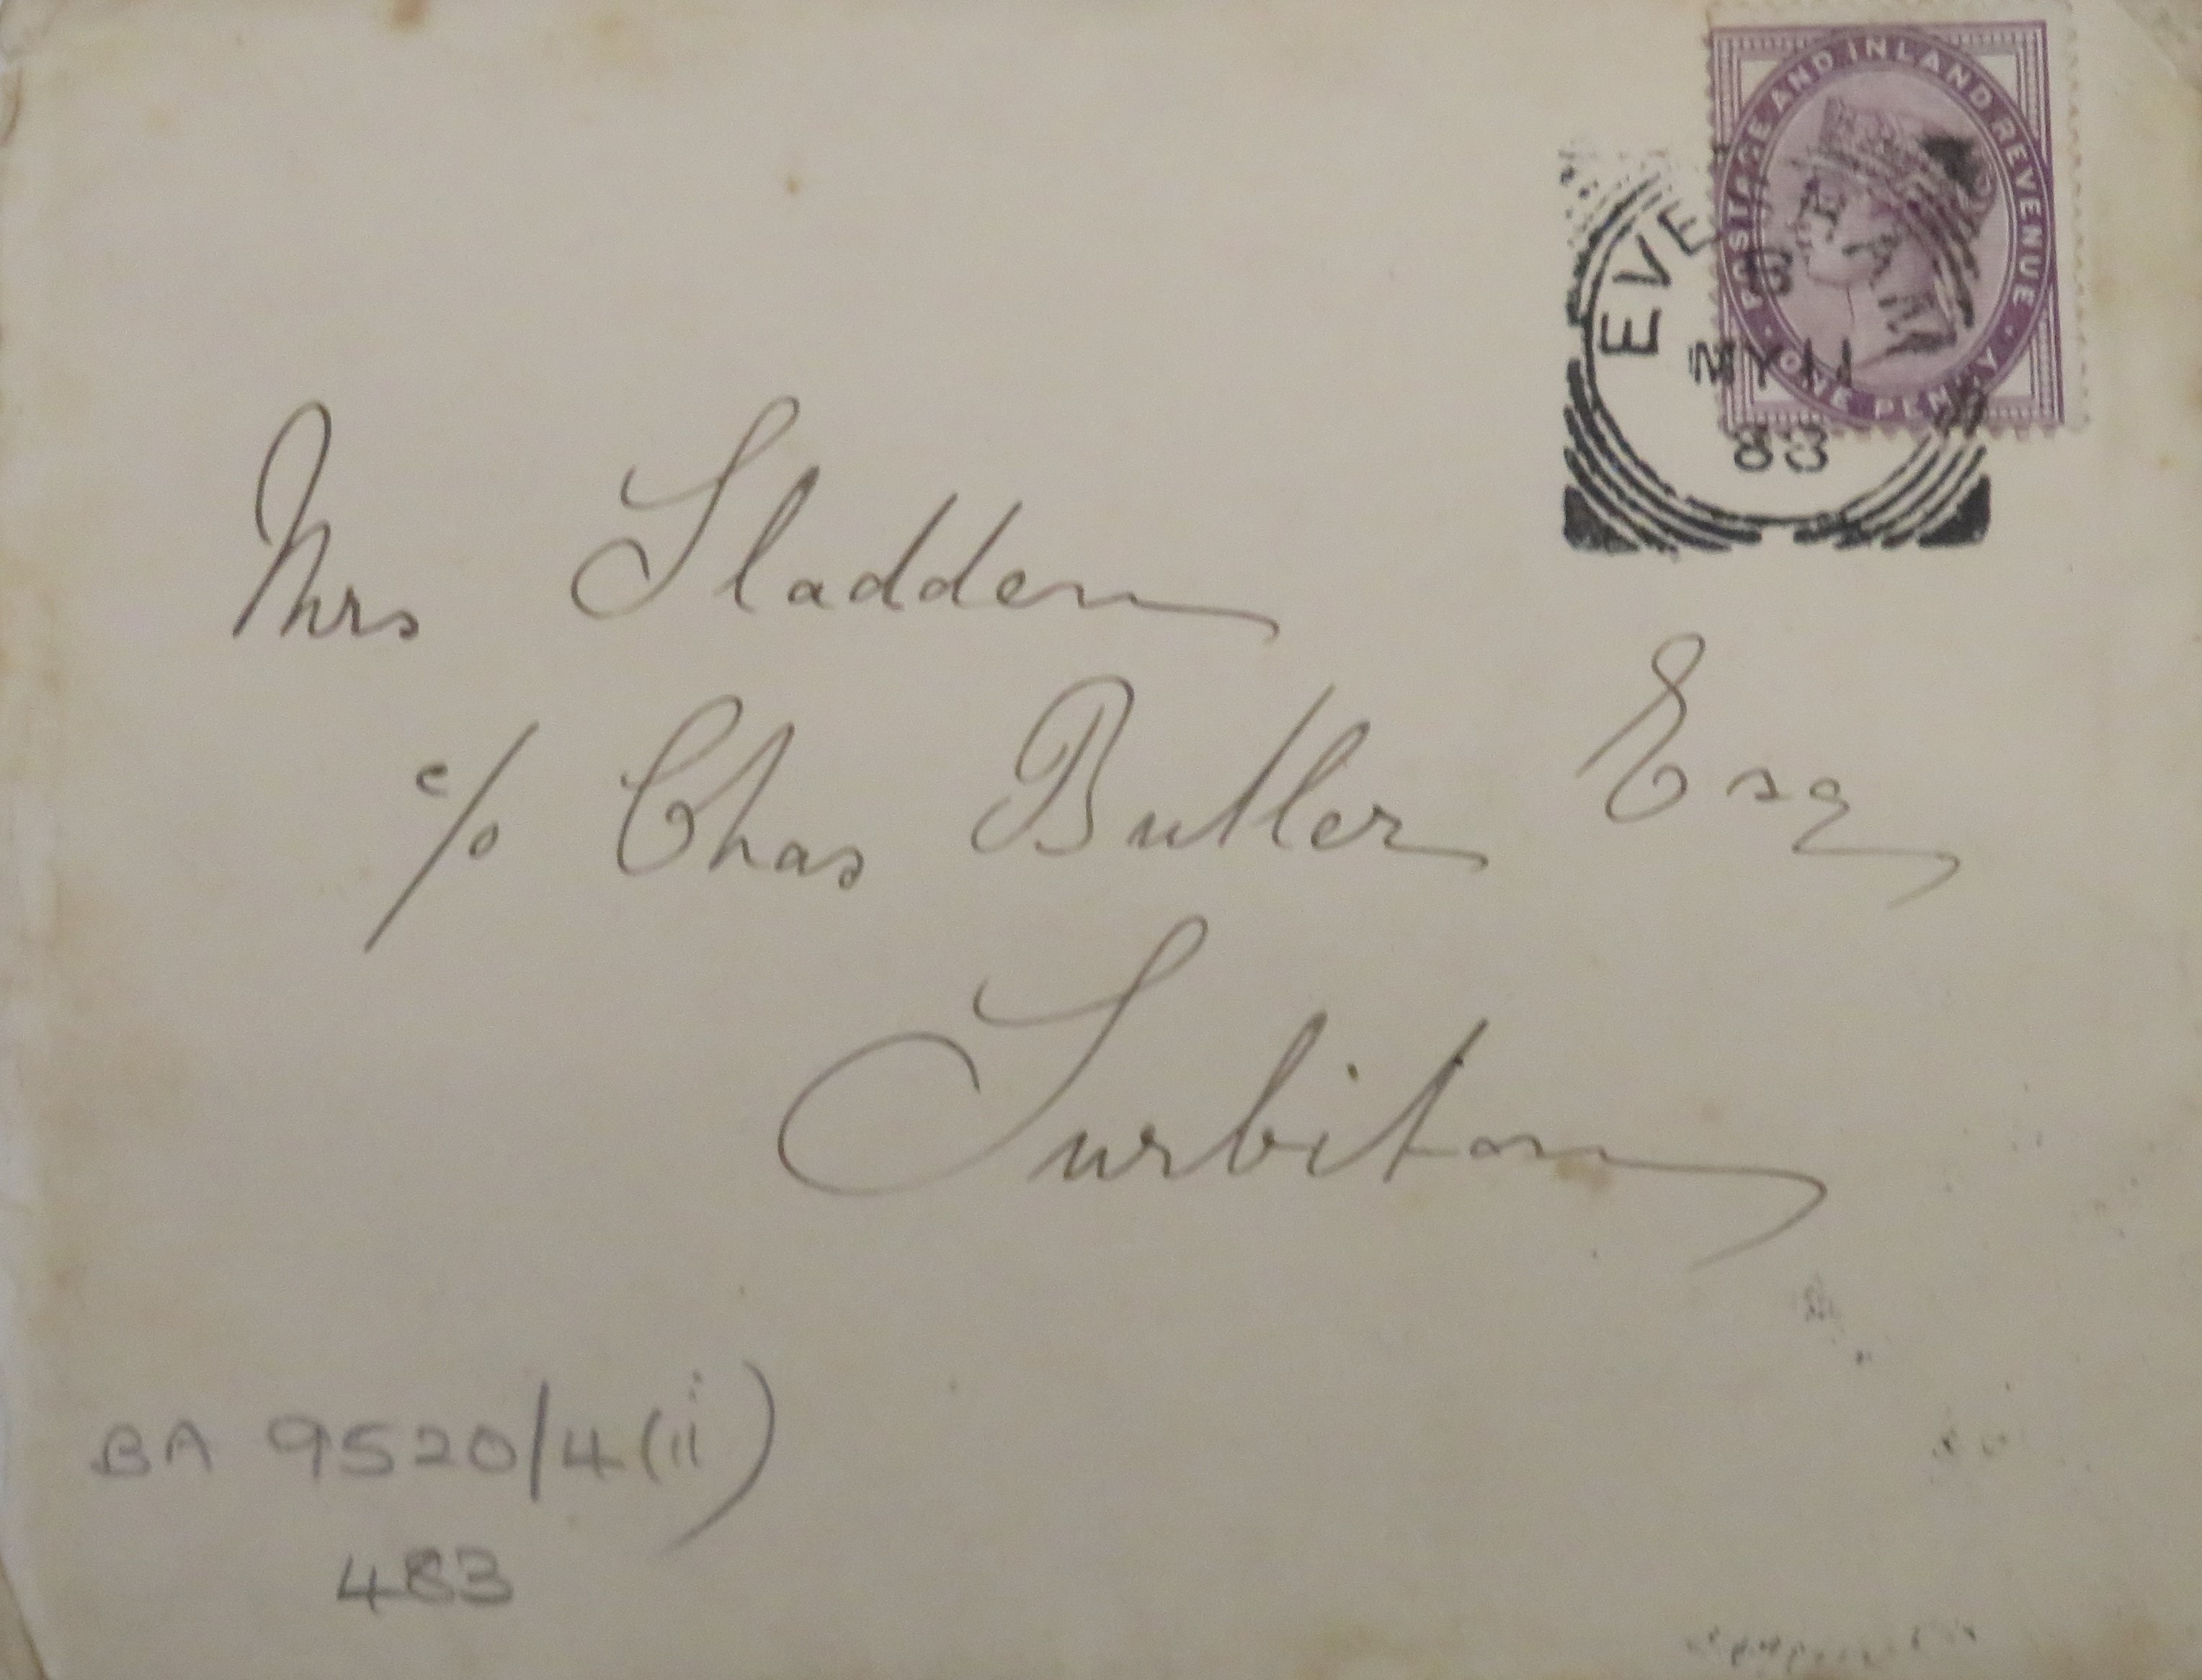 POSTAGE AND INLAND REVENUE
ONE PENNY
EVE HAM
MY 11
83
Mrs Sladden
c/o Chas Butler Esq
Surbiton
BA 9520/4(ii)
483